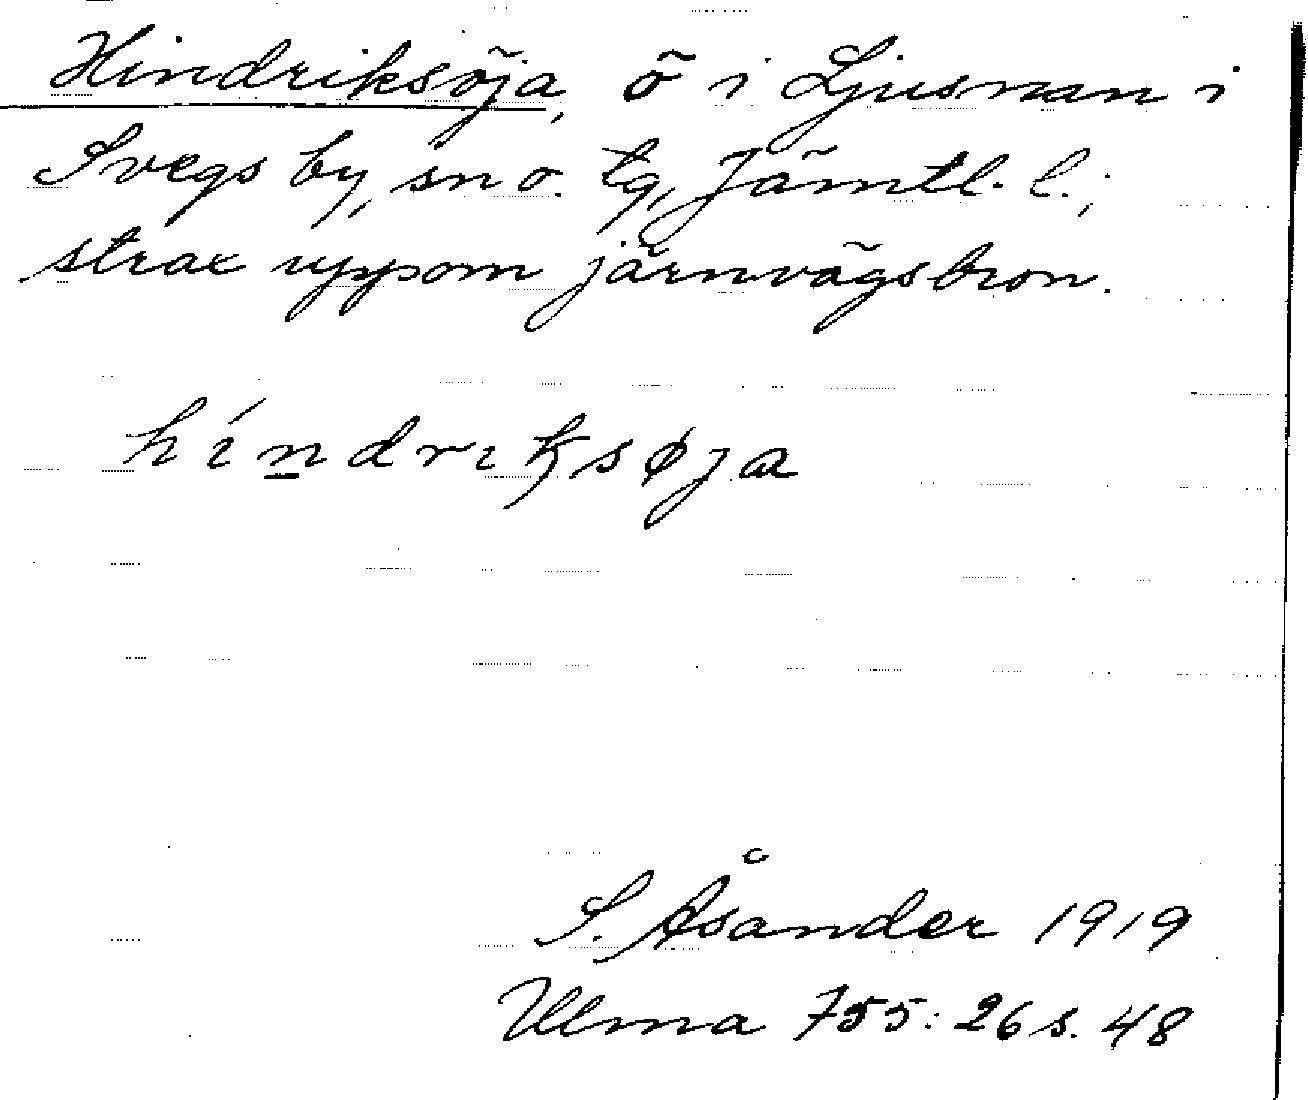 Hindriksöja, ö i Ljusnan i
Svegs by, sn o. tg, Jämtl. l.;
strax uppom järnvägsbron.
híndrıksøja
S. Åsander 1919
Ulma 755: 26 s. 48